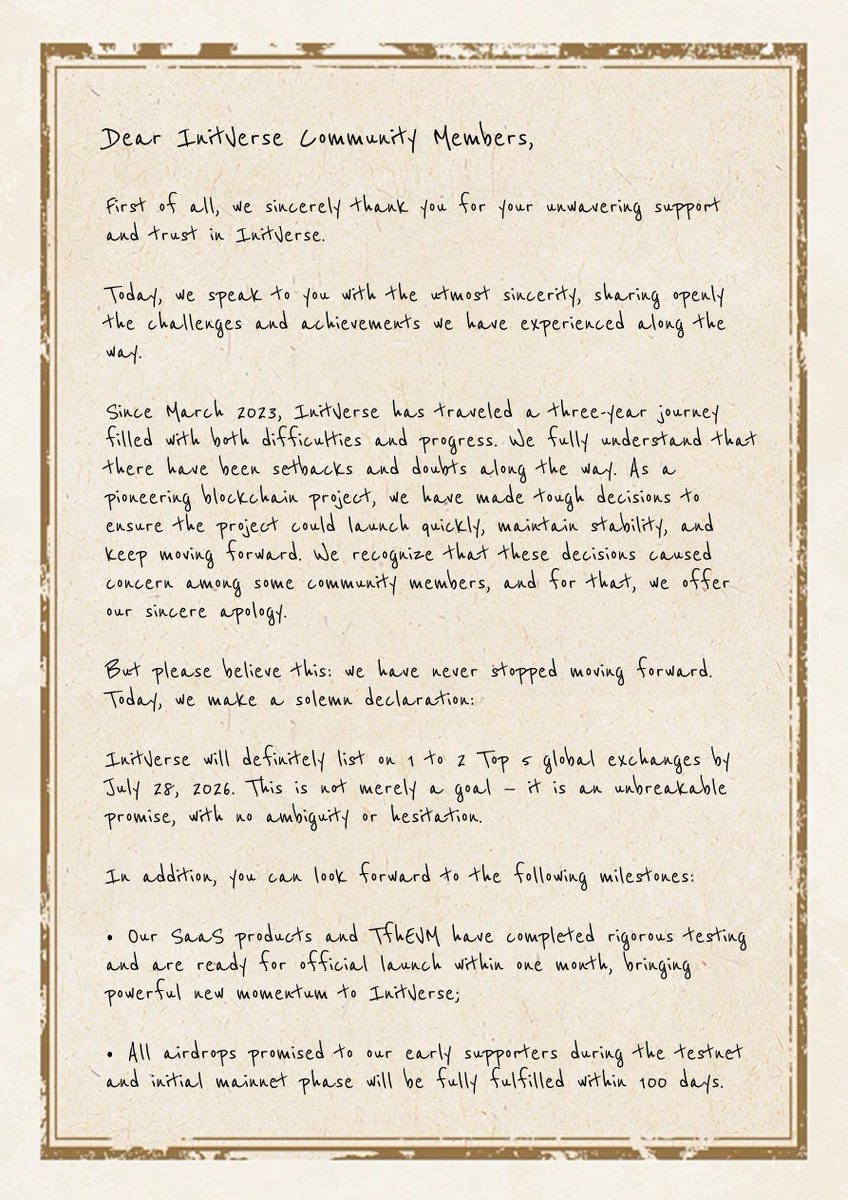 Dear InitVerse Community Members,
First of all, we sincerely thank you for your unwavering support
and trust in InitVerse.
Today, we speak to you with the utmost sincerity, sharing openly
the challenges and achievements we have experienced along the
way.
Since March 2023, InitVerse has traveled a three-year journey
filled with both difficulties and progress. We fully understand that
there have been setbacks and doubts along the way. As a
pioneering blockchain project, we have made tough decisions to
ensure the project could launch quickly, maintain stability, and
keep moving forward. We recognize that these decisions caused
concern among some community members, and for that, we offer
our sincere apology.
But please believe this: we have never stopped moving forward.
Today, we make a solemn declaration:
InitVerse will definitely list on 1 to 2 Top 5 global exchanges by
July 28, 2026. This is not merely a goal – it is an unbreakable
promise, with no ambiguity or hesitation.
In addition, you can look forward to the following milestones:
• Our SaaS products and TfhEVM have completed rigorous testing
and are ready for official launch within one month, bringing
powerful new momentum to InitVerse;
• All airdrops promised to our early supporters during the testnet
and initial mainnet phase will be fully fulfilled within 100 days.